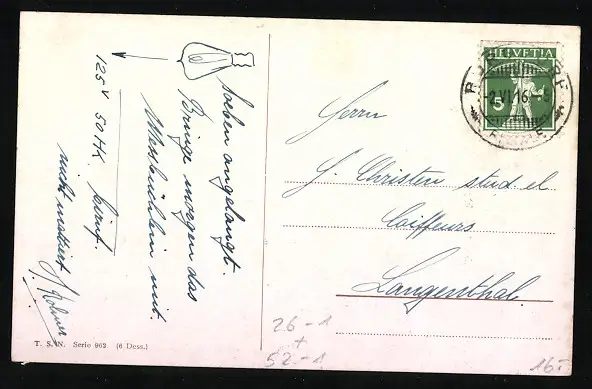 Soeben angelangt.
Bringe morgen das
mit.
125 V 50 HK
nicht mattiert
T. S. N. Serie 962 (6 Dess.)
HELVETIA
5
-2.VI.16.-6
Herrn
G. Christen stud. el.
Coiffeurs
Langenthal.
26-1
+
52-1
16.-